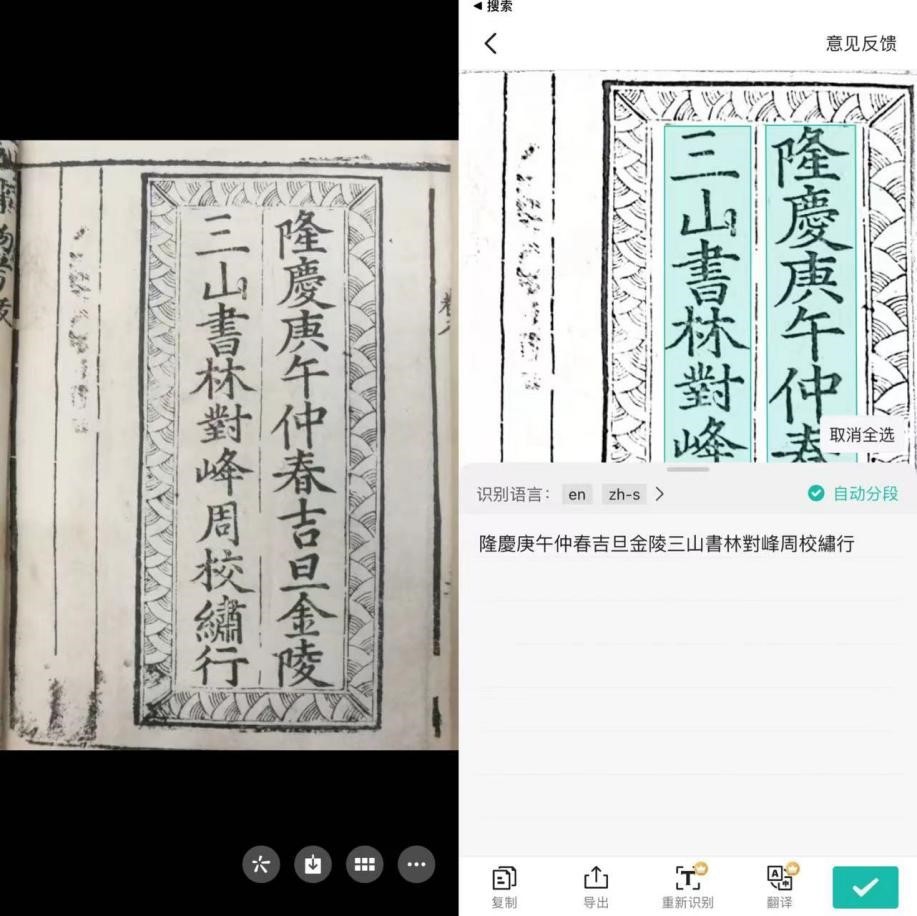 隆慶庚午仲春吉旦金陵
三山書林對峰周校繡行
搜索
意见反馈
隆慶庚午仲春
三山書林對峰
取消全选
识别语言： en zh-s
自动分段
隆慶庚午仲春吉旦金陵三山書林對峰周校繡行
复制
导出
重新识别
翻译